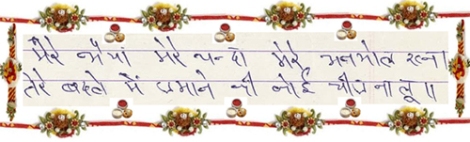 मेरे भैया मेरे चन्दा मेरे अनमोल रत्न।
तेरे बदले मैं ज़माने की कोई चीज ना लू॥